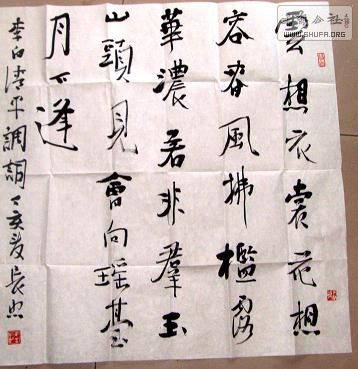 雲想衣裳花想
容春風拂檻露
華濃若非羣玉
山頭見會向瑶臺
月下逢
李白清平調詞丁亥夏長
WWW.SHUFA.ORG